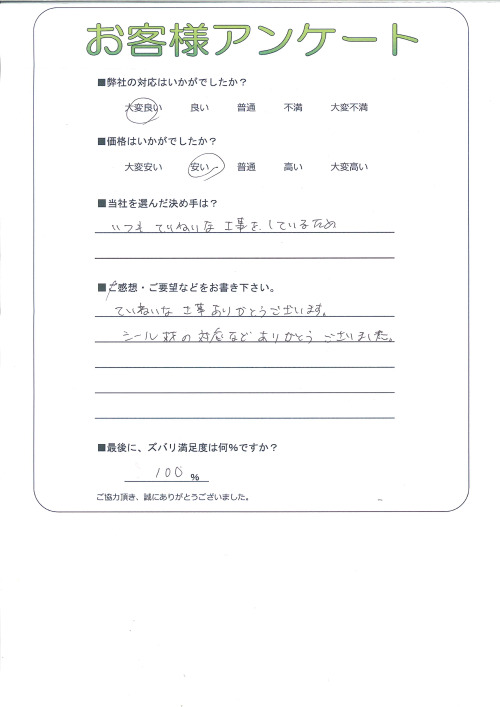 お客様アンケート
■弊社の対応はいかがでしたか?
大変良い 良い 普通 不満 大変不満
■価格はいかがでしたか?
大変安い 安い 普通 高い 大変高い
■当社を選んだ決め手は?
いつも ていねいな 工事を しているため
■ご感想・ご要望などをお書き下さい。
ていねいな 工事 ありがとうございます。
シール材の 対応など ありがとう ございました。
■最後に、ズバリ満足度は何%ですか?
100 %
ご協力頂き、誠にありがとうございました。